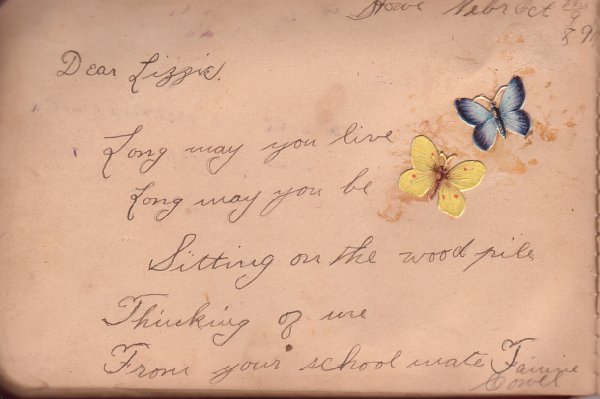 Howe Nebr Oct
9
89
Dear Lizzie.
Long may you live
Long may you be
Sitting on the wood pile
Thinking of me
From your school mate Fannie
Cowell